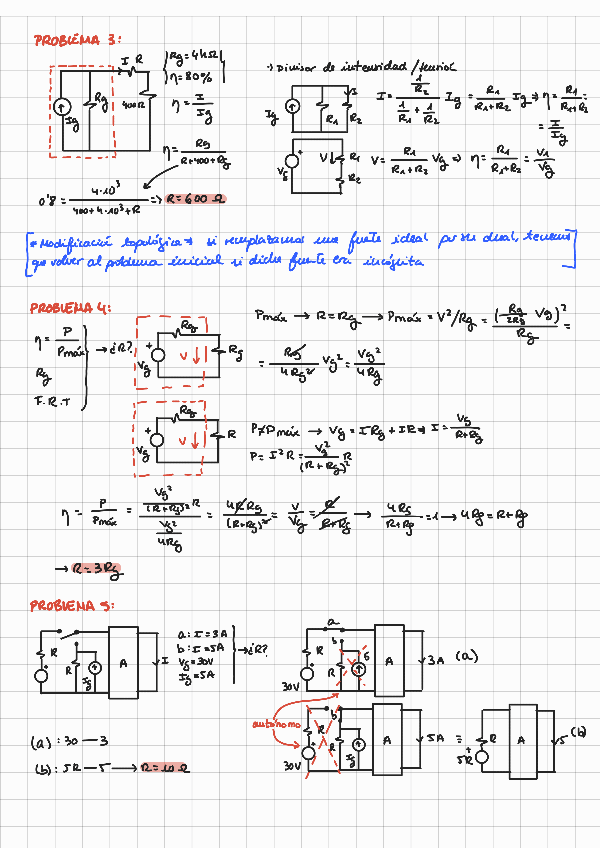 PROBLEMA 3:
I R
Rg = 4kΩ
η = 80%
Ig
Rg
400Ω
η = I / Ig
η = Rg / (R+400+Rg)
0'8 = 4·10³ / (400+4·10³+R) ⇒ R = 600 Ω
Divisor de intensidad / tensión
Ig R1 R2 I
I = (1/R2) / (1/R1 + 1/R2) Ig = R1 / (R1+R2) Ig ⇒ η = R1 / (R1+R2)
= I / Ig
Vg + V R1 R2
V = R1 / (R1+R2) Vg ⇒ η = R1 / (R1+R2) = V1 / Vg
* Modificació topológica ⇒ si remplazamos una fuente ideal por su dual, tenemos
que volver al problema inicial si dicha fuente era incógnita
PROBLEMA 4:
η = P / Pmáx
Rg
F.R.T
→ ¿R?
Rg + Vg V Rg
Pmáx → R = Rg → Pmáx = V²/Rg = (Rg/2Rg Vg)² / Rg =
= Rg / 4Rg² Vg² = Vg² / 4Rg
Rg + Vg V R
P≠Pmáx → Vg = IRg + IR ⇒ I = Vg / (R+Rg)
P = I²R = Vg² / (R+Rg)² R
η = P / Pmáx = (Vg² / (R+Rg)² R) / (Vg² / 4Rg) = 4RRg / (R+Rg)² = V / Vg = R / (R+Rg) → 4Rg / (R+Rg) = 1 → 4Rg = R+Rg
→ R = 3Rg
PROBLEMA 5:
R R Ig A I
a: I = 3A
b: I = 5A
Vg = 30V
Ig = 5A
→ ¿R?
a
b
R R 5 A 3A (a)
30V
autónomo
b
R R Ig A 5A = R 5R A 5 (b)
30V
(a): 30 — 3
(b): 5R — 5 → R = 10 Ω